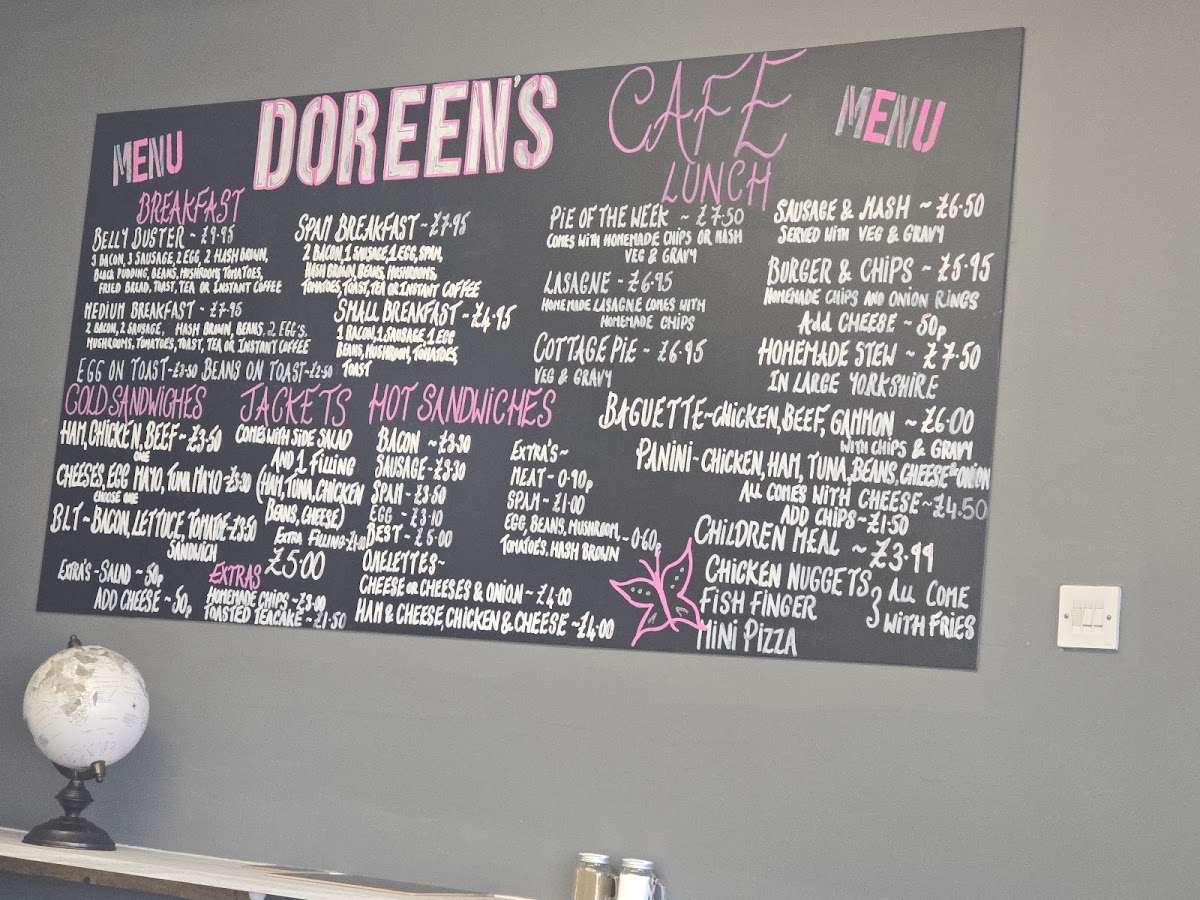 MENU
DOREEN'S
CAFE
MENU
BREAKFAST
BELLY BUSTER ~ £9.95
3 BACON, 3 SAUSAGE, 2 EGG, 2 HASH BROWN,
BLACK PUDDING, BEANS, MUSHROOMS TOMATOES,
FRIED BREAD, TOAST, TEA OR INSTANT COFFEE
MEDIUM BREAKFAST - £7.95
2 BACON, 2 SAUSAGE, HASH BROWN, BEANS, 2 EGG'S.
MUSHROOMS, TOMATOES, TOAST, TEA OR INSTANT COFFEE
SPAM BREAKFAST ~ £7.95
2 BACON, 1 SAUSAGE, 1 EGG, SPAM,
HASH BROWN, BEANS, MUSHROOMS,
TOMATOES, TOAST, TEA OR INSTANT COFFEE
SMALL BREAKFAST - £4.95
1 BACON, 1 SAUSAGE, 1 EGG
BEANS, MUSHROOM, TOMATOES
TOAST
EGG ON TOAST - £3.50 BEANS ON TOAST - £2.50
COLD SANDWICHES
HAM, CHICKEN, BEEF ~ £3.50
ONE
CHEESES, EGG MAYO, TUNA MAYO - £3.30
CHOOSE ONE
BLT ~ BACON, LETTUCE, TOMATOE - £3.50
SANDWICH
EXTRA'S - SALAD ~ 50p
ADD CHEESE ~ 50p
JACKETS
COMES WITH SIDE SALAD
AND 1 FILLING
(HAM, TUNA, CHICKEN
BEANS, CHEESE)
EXTRA FILLING - £1.00
£5.00
EXTRAS
HOMEMADE CHIPS ~ £3.00
TOASTED TEACAKE ~ £1.50
HOT SANDWICHES
BACON ~ £3.30
SAUSAGE - £3.30
SPAM - £3.50
EGG - £3.10
BEST - £5.00
EXTRA'S ~
MEAT - 0.90p
SPAM - £1.00
EGG, BEANS, MUSHROOM,
TOMATOES, HASH BROWN - 0.60p
OMELETTES ~
CHEESE OR CHEESES & ONION ~ £4.00
HAM & CHEESE, CHICKEN & CHEESE ~ £4.00
LUNCH
PIE OF THE WEEK ~ £7.50
COMES WITH HOMEMADE CHIPS OR MASH
VEG & GRAVY
LASAGNE - £6.95
HOMEMADE LASAGNE COMES WITH
HOMEMADE CHIPS
COTTAGE PIE - £6.95
VEG & GRAVY
SAUSAGE & MASH ~ £6.50
SERVED WITH VEG & GRAVY
BURGER & CHIPS - £5.95
HOMEMADE CHIPS AND ONION RINGS
Add CHEESE ~ 50p
HOMEMADE STEW ~ £7.50
IN LARGE YORKSHIRE
BAGUETTE - CHICKEN, BEEF, GAMMON ~ £6.00
WITH CHIPS & GRAVY
PANINI - CHICKEN, HAM, TUNA, BEANS, CHEESE & ONION
ALL COMES WITH CHEESE ~ £4.50
ADD CHIPS ~ £1.50
CHILDREN MEAL ~ £3.99
CHICKEN NUGGETS
FISH FINGER
MINI PIZZA
} ALL COME
WITH FRIES